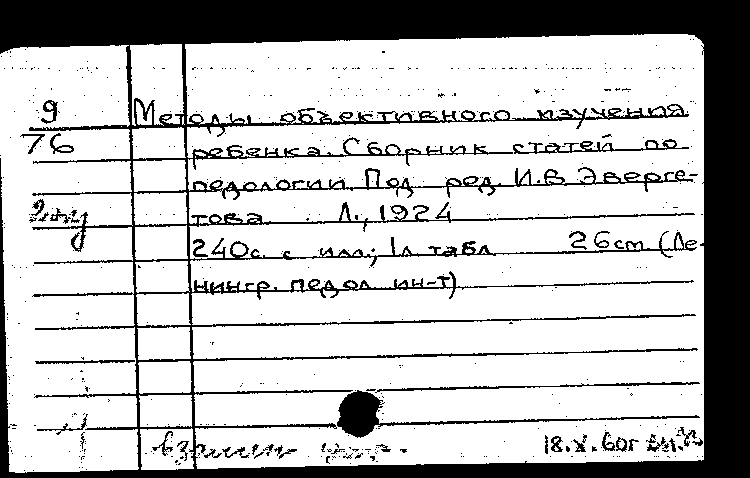 9
76
Методы объективного изучения
ребенка. Сборник статей по
педологии. Под ред. И.В Эверге-
това Л., 1924
240с. с илл.; 1л табл 26cm (Ле-
нингр. педол ин-т)
взамен
18.X.60г